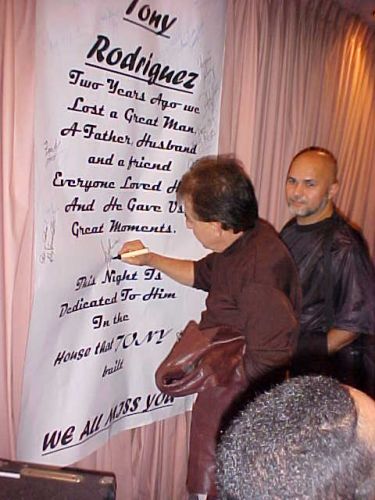 Tony
Rodriguez
Two Years Ago we
Lost a Great Man.
A Father, Husband
and a friend
Everyone Loved
And He Gave Us
Great Moments.
This Night Is
Dedicated To Him
In the
House that TONY
built
WE ALL MISS YOU